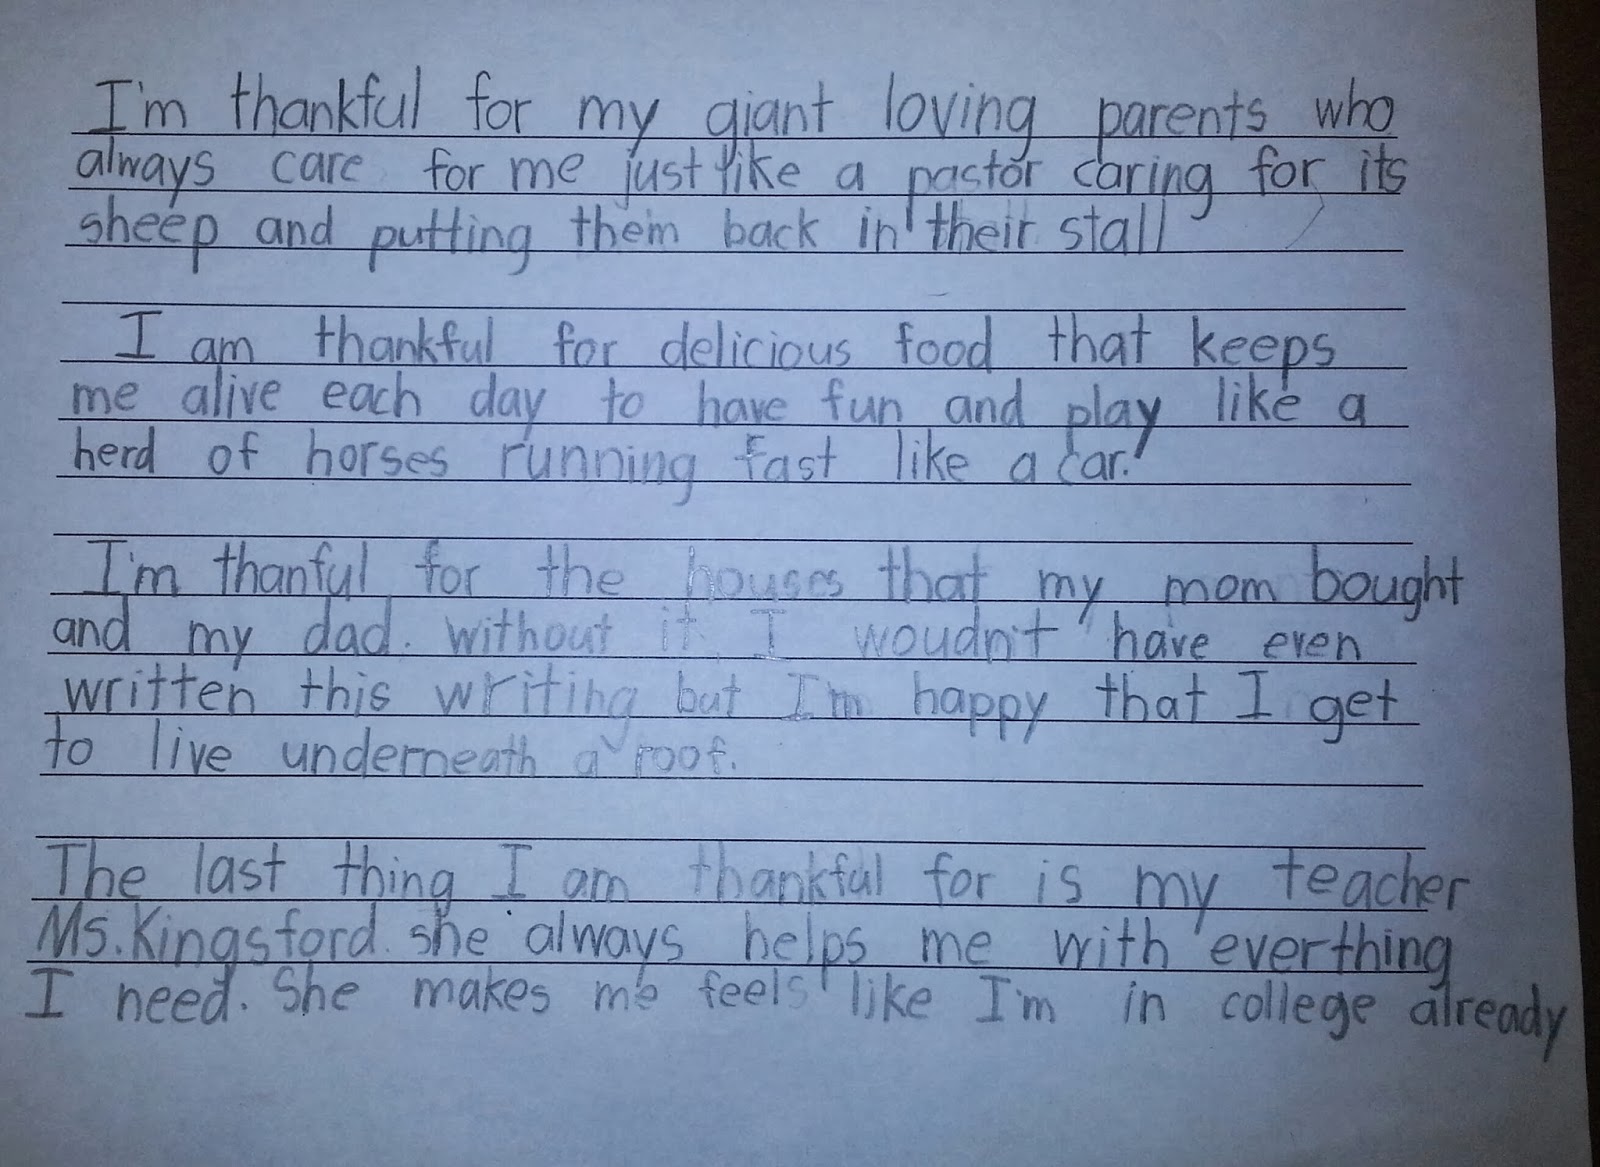 I'm thankful for my giant loving parents who
always care for me just like a pastor caring for its
sheep and putting them back in their stall
I am thankful for delicious food that keeps
me alive each day to have fun and play like a
herd of horses running fast like a car.
I'm thanful for the houses that my mom bought
and my dad. without it I woudn't have even
written this writing but I'm happy that I get
to live underneath a roof.
The last thing I am thankful for is my teacher
Ms. Kingsford. she always helps me with everthing
I need. She makes me feels like I'm in college already